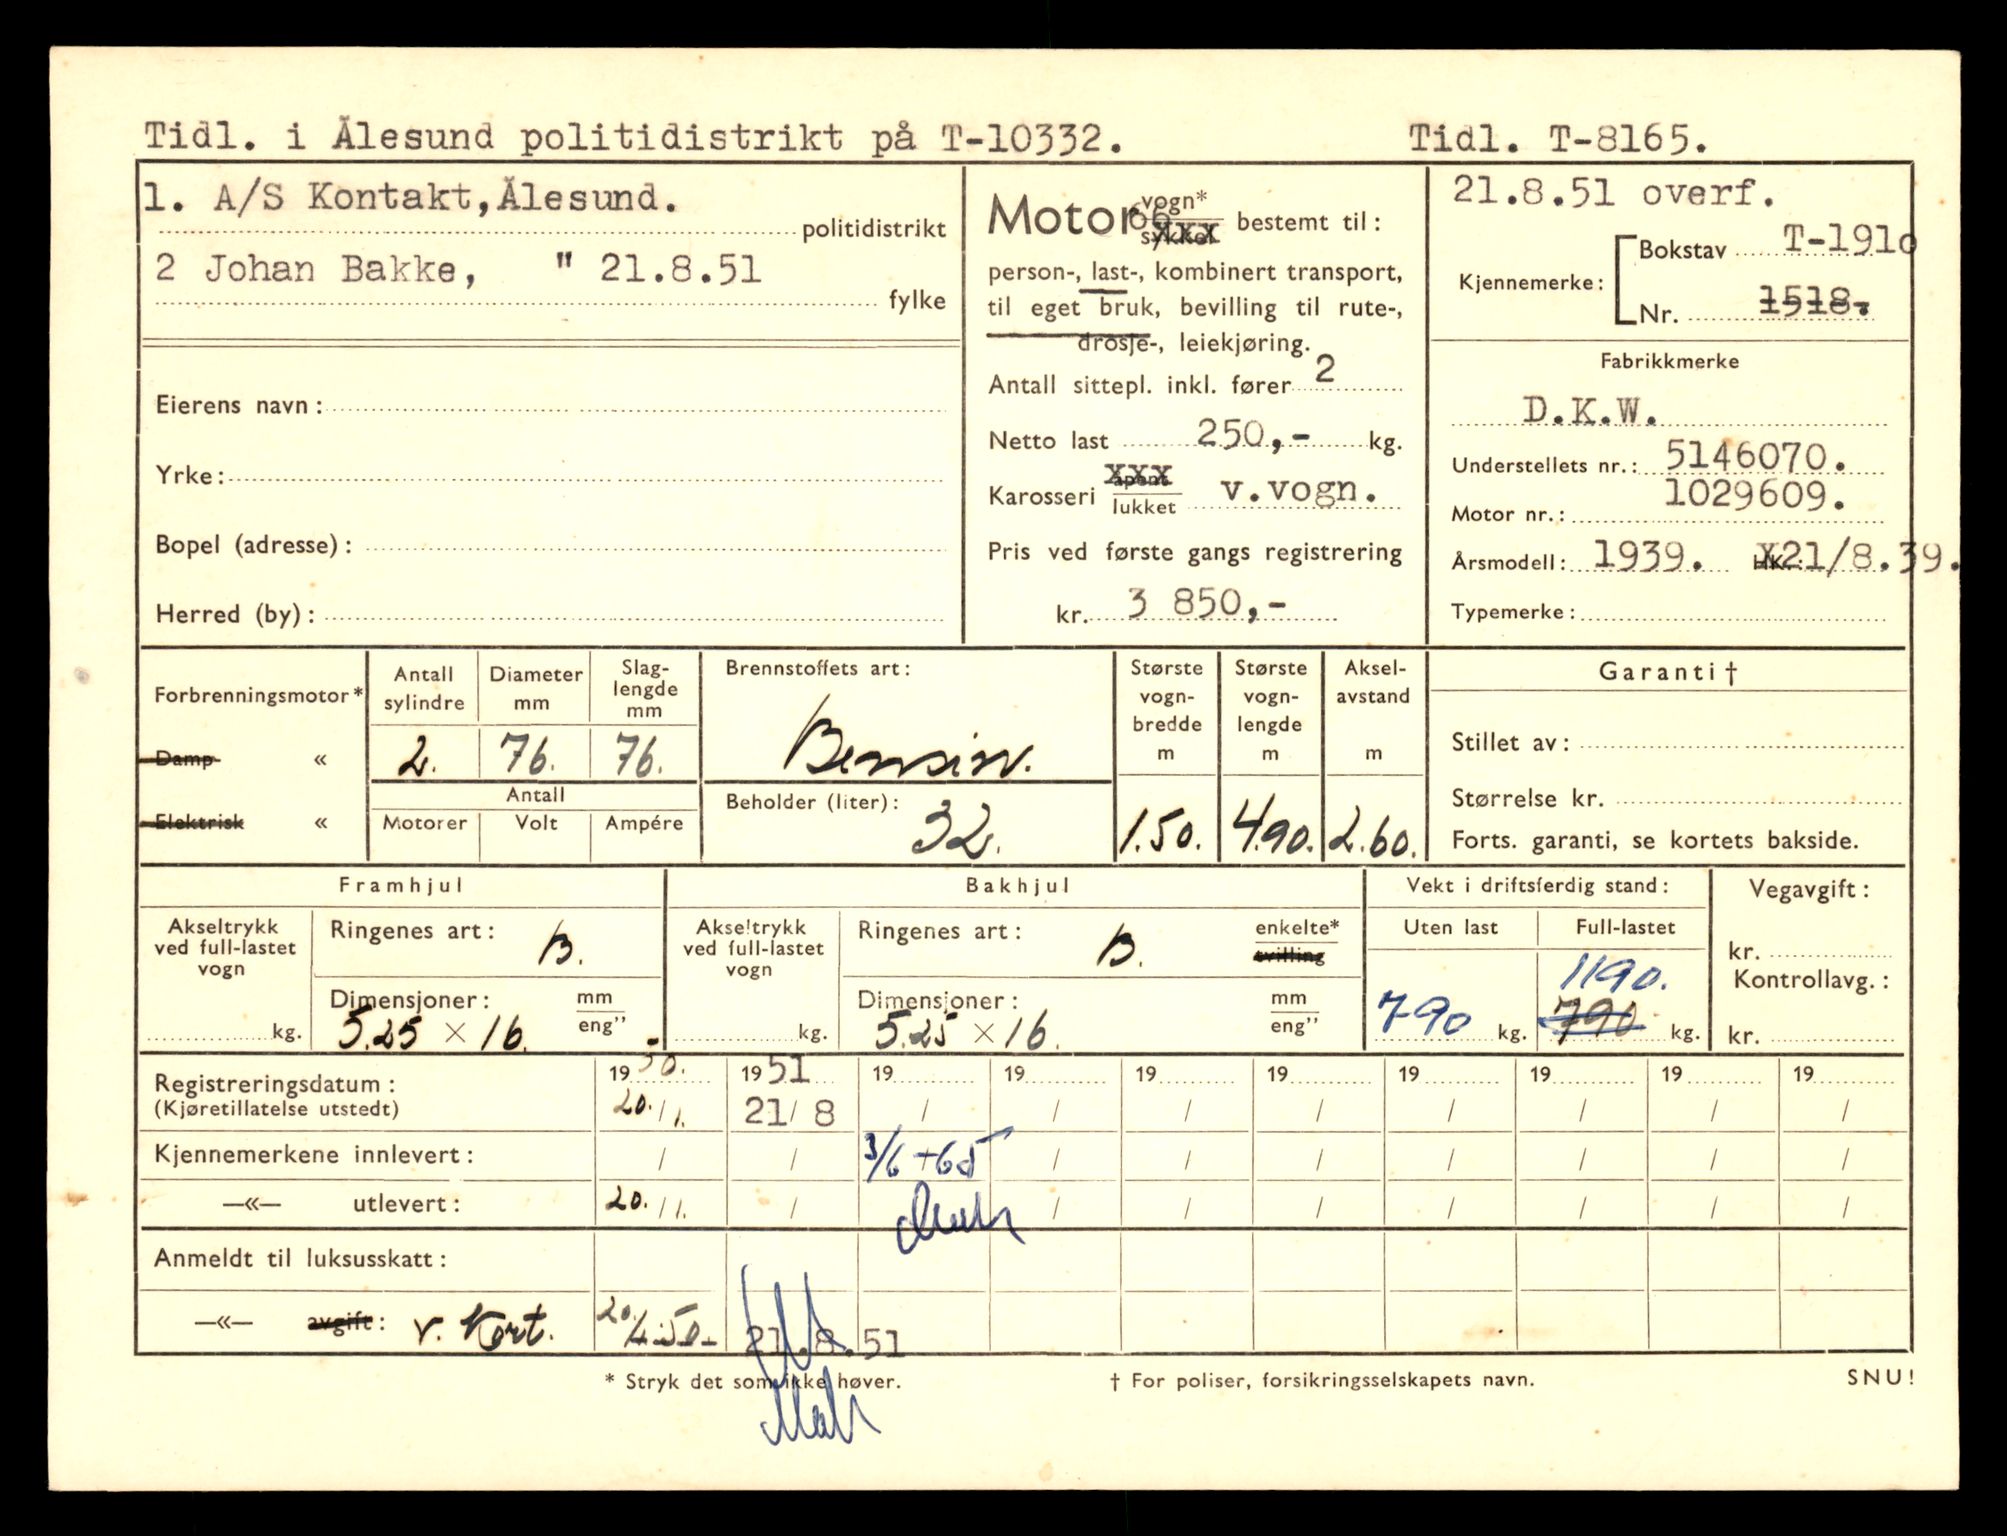 Tidl. i Ålesund politidistrikt på T-10332. Tidl. T-8165.
1. A/S Kontakt, Ålesund.
politidistrikt
2 Johan Bakke, " 21.8.51
fylke
Eierens navn:
Yrke:
Bopel (adresse):
Herred (by):
Motor vogn* sykkel bestemt til:
person-, last-, kombinert transport,
til eget bruk, bevilling til rute-,
drosje-, leiekjøring.
Antall sittepl. inkl. fører 2
Netto last 250,- kg.
Karosseri åpent lukket v.vogn.
Pris ved første gangs registrering
kr. 3 850,-
21.8.51 overf.
Kjennemerke: Bokstav T-1910
Nr. 1518.
Fabrikkmerke
D.K.W.
Understellets nr.: 5146070.
Motor nr.: 1029609.
Årsmodell: 1939. HK.: X21/8.39.
Typemerke:
Forbrenningsmotor*
Damp «
Elektrisk «
Antall sylindre 2.
Diameter mm 76.
Slaglengde mm 76.
Antall
Motorer Volt Ampére
Brennstoffets art:
Bensin.
Beholder (liter): 32.
Største vognbredde m 1.50.
Største vognlengde m 4.90.
Akselavstand m 2.60.
Garanti †
Stillet av:
Størrelse kr.
Forts. garanti, se kortets bakside.
Framhjul
Akseltrykk ved full-lastet vogn kg.
Ringenes art: B.
Dimensjoner: mm eng”
5.25 × 16.
Bakhjul
Akseltrykk ved full-lastet vogn kg.
Ringenes art: B. enkelte* tvilling
Dimensjoner: mm eng”
5.25 × 16.
Vekt i driftsferdig stand:
Uten last Full-lastet
1190.
790 kg. 790 kg.
Vegavgift:
kr.
Kontrollavg.:
kr.
Registreringsdatum: 1950. 1951 19 19 19 19 19 19 19 19
(Kjøretillatelse utstedt) 20./1. 21/8 / / / / / / / /
Kjennemerkene innlevert: / / 3/6 +65 / / / / / / /
—«— utlevert: 20./1. / / / / / / / /
Anmeldt til luksusskatt:
—«— avgift: v. Kort. 21.8.51
* Stryk det som ikke høver. † For poliser, forsikringsselskapets navn. SNU!